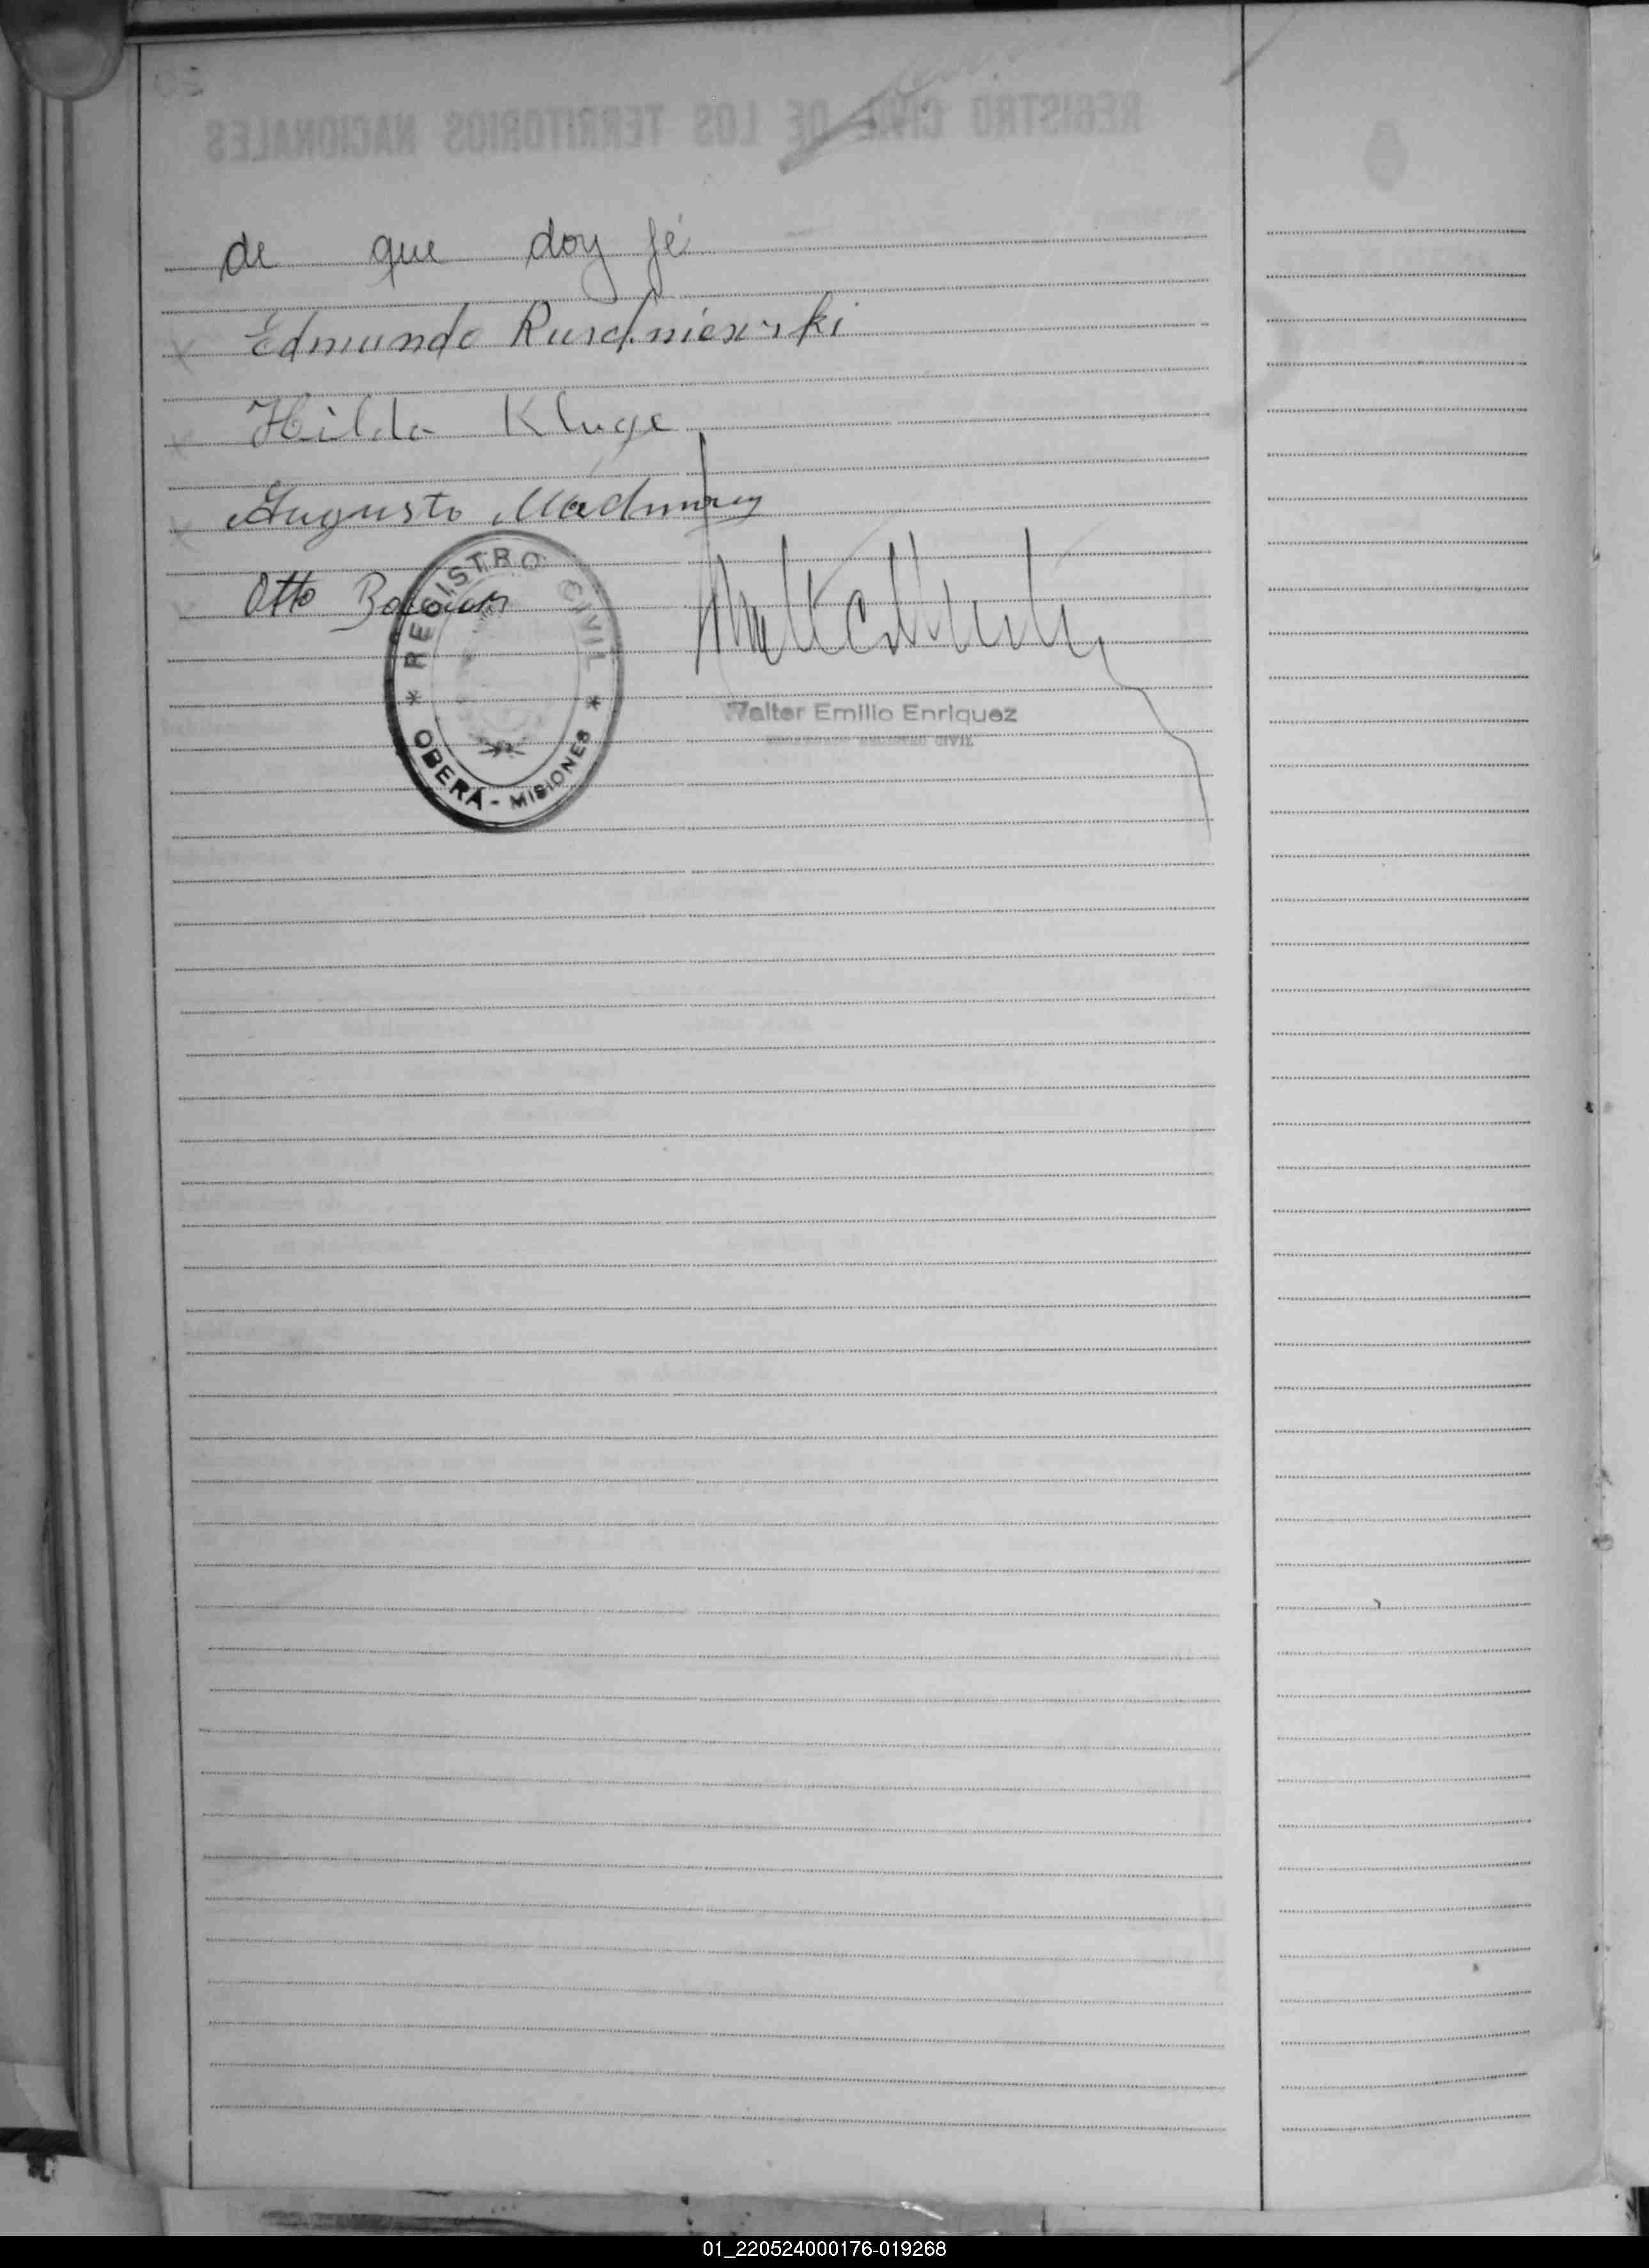 de que doy fé
Edmundo Ruschniewski
Hilda Kluge
Augusto
Otto
REGISTRO CIVIL
OBERÁ - MISIONES
Walter Emilio Enriquez
REGISTRO CIVIL
01_220524000176-019268